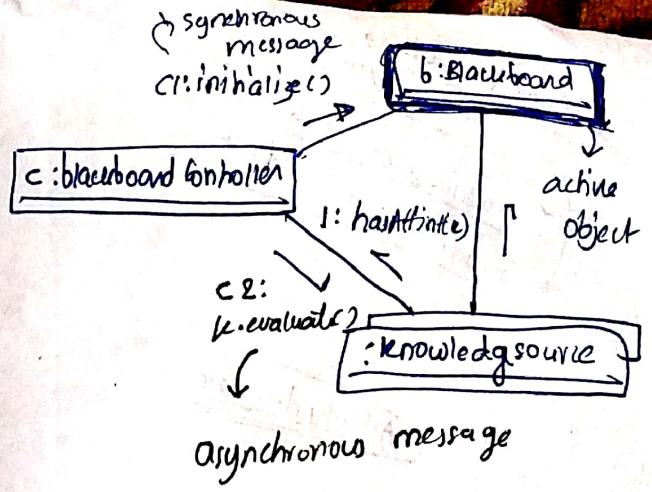 synchronous
message
C1:initialize()
b:Blackboard
c:blackboard Controller
active
object
1: hasAHint()
C2:
k.evaluate()
:knowledgsource
asynchronous message